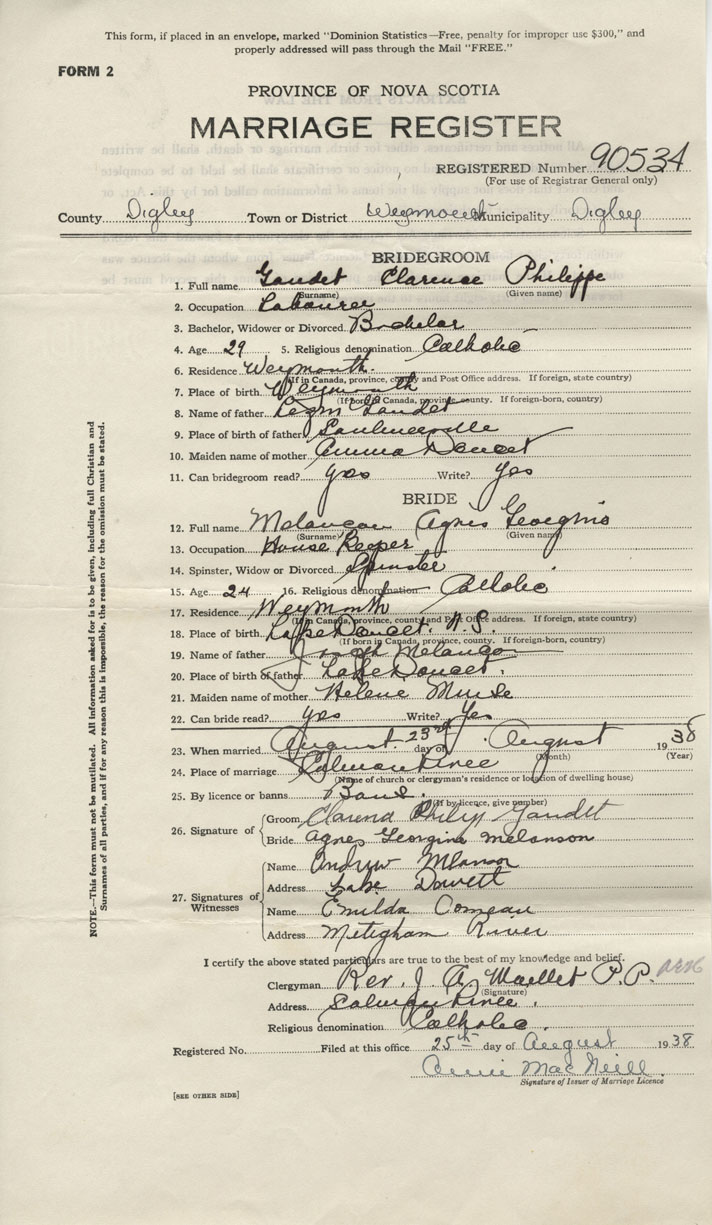 This form, if placed in an envelope, marked "Dominion Statistics—Free, penalty for improper use $300," and
properly addressed will pass through the Mail "FREE."
FORM 2
PROVINCE OF NOVA SCOTIA
MARRIAGE REGISTER
REGISTERED Number 90534
(For use of Registrar General only)
County Digby Town or District Weymouth Municipality Digby
BRIDEGROOM
1. Full name Gaudet Clarence Philippe
(Surname) (Given name)
2. Occupation Labourer
3. Bachelor, Widower or Divorced Bachelor
4. Age 29 5. Religious denomination Catholic
6. Residence Weymouth.
(If in Canada, province, county and Post Office address. If foreign, state country)
7. Place of birth Weymouth
(If born in Canada, province, county. If foreign-born, country)
8. Name of father Gaudet
9. Place of birth of father Saulnierville
10. Maiden name of mother Emma Doucet
11. Can bridegroom read? yes Write? yes
BRIDE
12. Full name Melancon Agnes Georgina
(Surname) (Given name)
13. Occupation House Keeper
14. Spinster, Widow or Divorced Spinster
15. Age 24 16. Religious denomination Catholic
17. Residence Weymouth
(If in Canada, province, county and Post Office address. If foreign, state country)
18. Place of birth Lake Doucet. N.S.
(If born in Canada, province, county. If foreign-born, country)
19. Name of father Joseph Melancon
20. Place of birth of father Lake Doucet.
21. Maiden name of mother Helene Muise
22. Can bride read? yes Write? Yes
23. When married August 23rd day of August 1938
(Month) (Year)
24. Place of marriage
(Name of church or clergyman's residence or location of dwelling house)
25. By licence or banns Bans.
(If by licence, give number)
26. Signature of
Groom Clarence Philip Gaudet
Bride Agnes Georgina Melanson
27. Signatures of Witnesses
Name Andrew Mlanson
Address Lake
Name Emilda Comeau
Address Meteghan River
I certify the above stated particulars are true to the best of my knowledge and belief.
Clergyman Rev. J. A. P.P.
(Signature)
Address
Religious denomination Catholic.
Registered No. Filed at this office 25th day of August 1938
Annie MacNeill
Signature of Issuer of Marriage Licence
[SEE OTHER SIDE]
NOTE.—This form must not be mutilated. All information asked for is to be given, including full Christian and
Surnames of all parties, and if for any reason this is impossible, the reason for the omission must be stated.